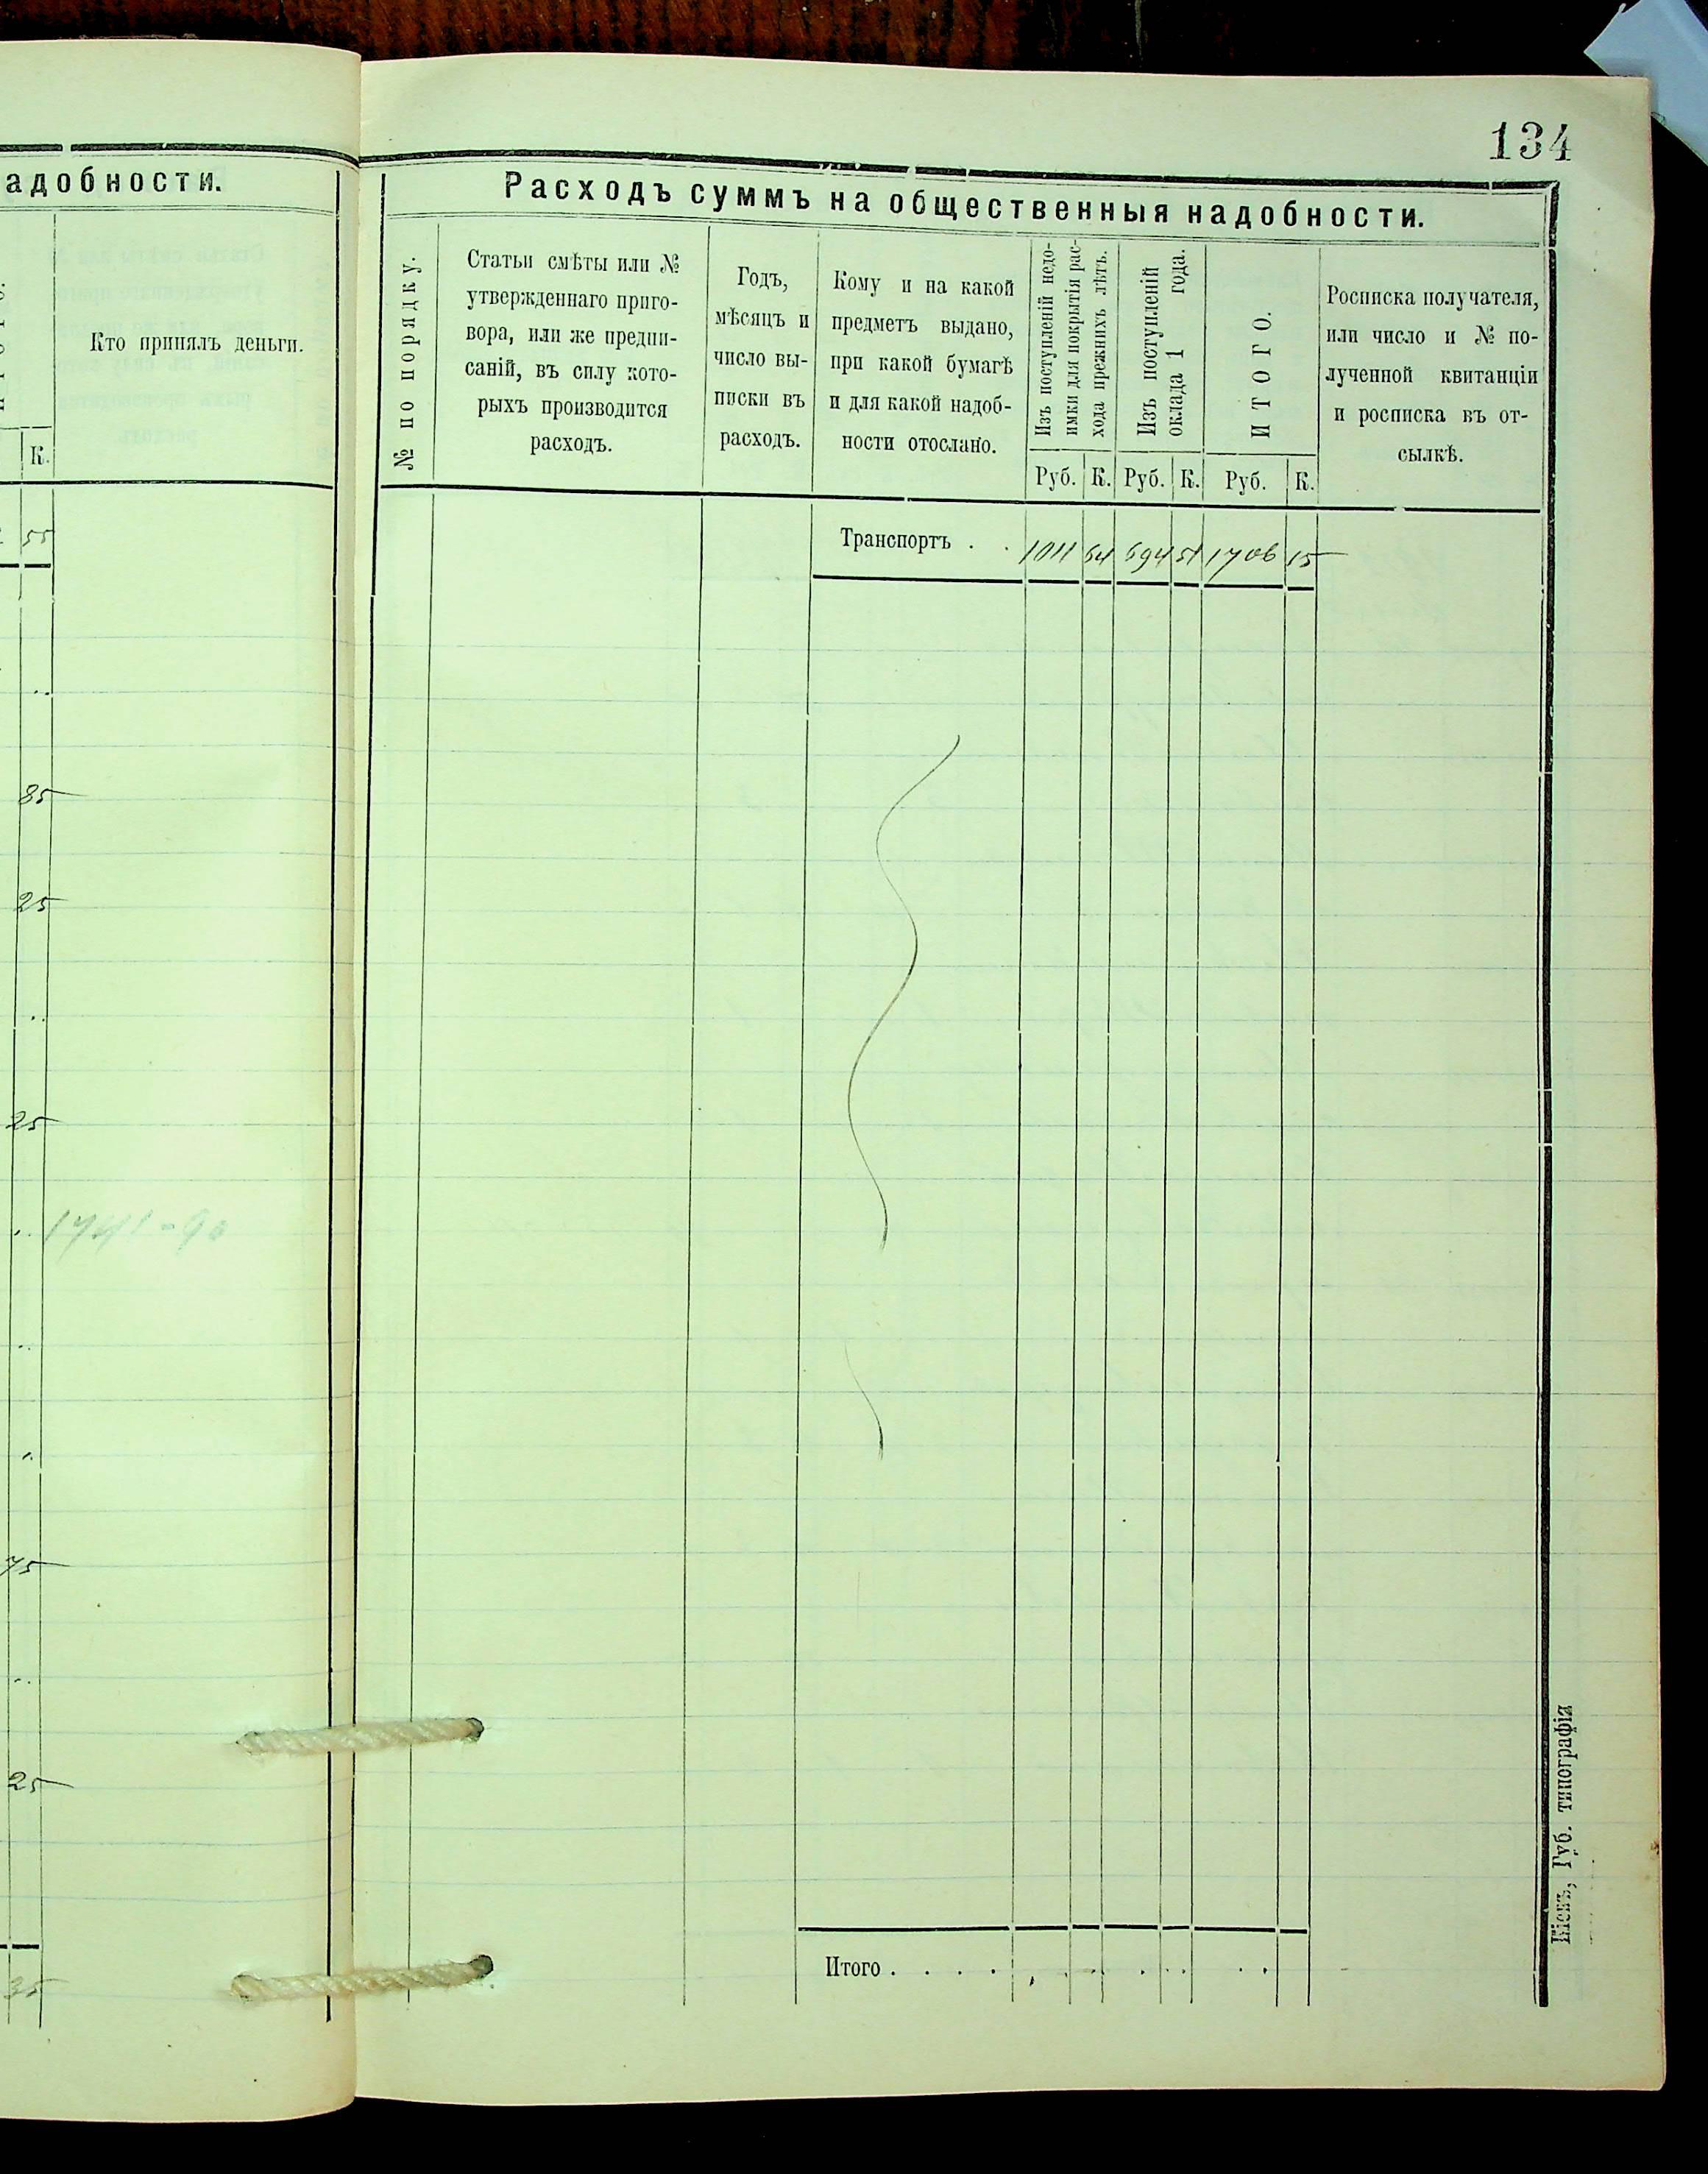 134
адобности.
К.
Кто принялъ деньги.
55
85
25
25
1741-90
75
25
35
Расходъ суммъ на общественныя надобности.
№ по порядку.
Статьи смѣты или №
утвержденнаго приго-
вора, или же предпи-
саній, въ силу кото-
рыхъ производится
расходъ.
Годъ,
мѣсяцъ и
число вы-
писки въ
расходъ.
Кому и на какой
предметъ выдано,
при какой бумагѣ
и для какой надоб-
ности отослано.
Изъ поступленій недо-
имки для покрытія рас-
хода прежнихъ лѣтъ.
Изъ поступленій
оклада 1 года.
ИТОГО.
Росписка получателя,
или число и № по-
лученной квитанціи
и росписка въ от-
сылкѣ.
Руб. К. Руб. К. Руб. К.
Транспортъ . . 1011 64 694 51 1706 15
Итого . . . .
Кіевъ, Губ. типографія